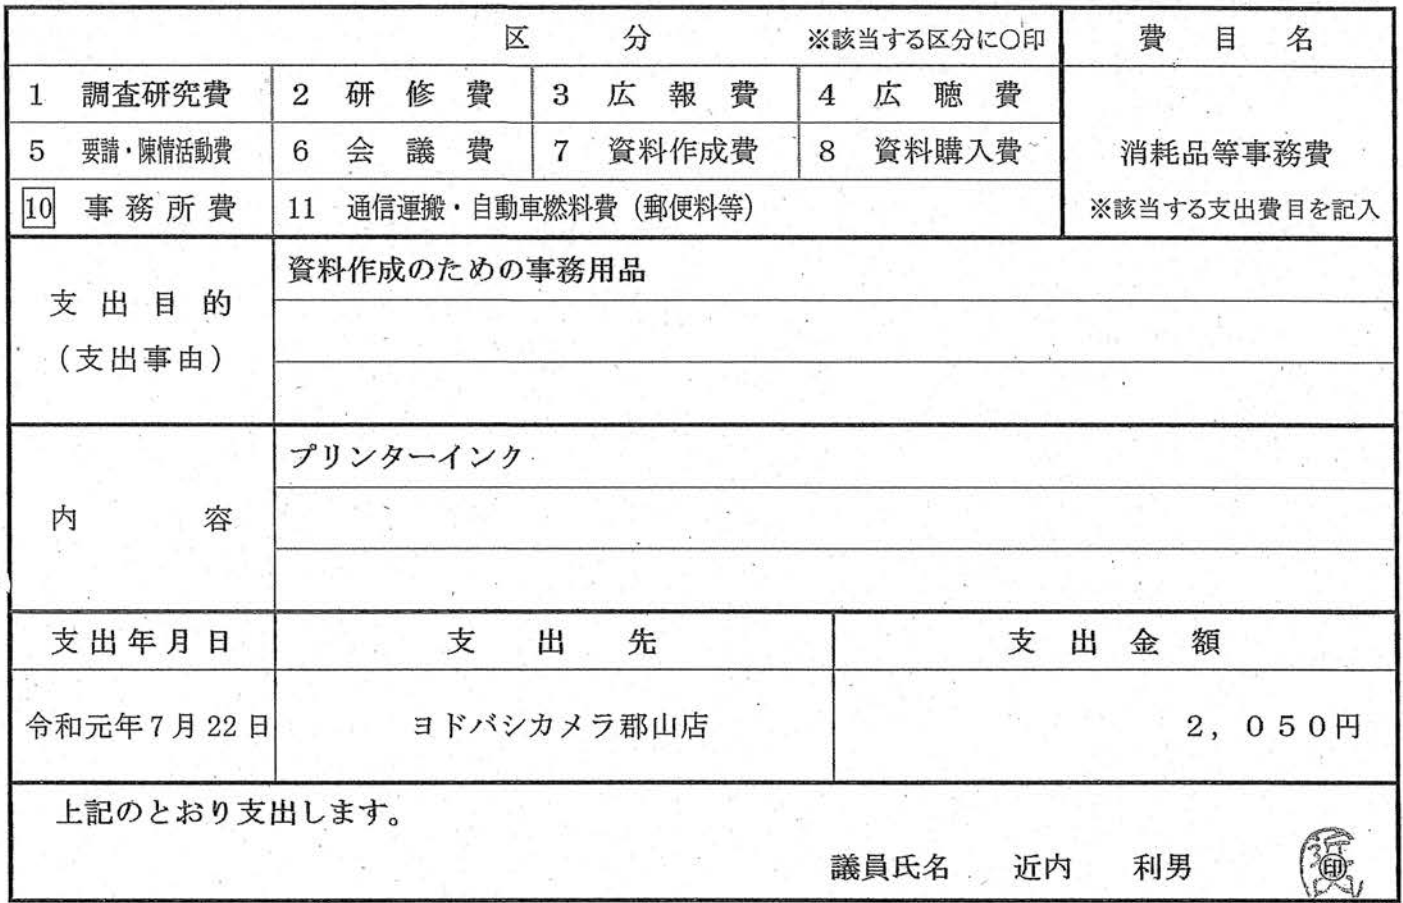 区 分 ※該当する区分に○印 費 目 名
1 調査研究費 2 研 修 費 3 広 報 費 4 広 聴 費
5 要請・陳情活動費 6 会 議 費 7 資料作成費 8 資料購入費 消耗品等事務費
10 事務所費 11 通信運搬・自動車燃料費（郵便料等） ※該当する支出費目を記入
支 出 目 的
（支出事由）
資料作成のための事務用品
内 容
プリンターインク
支出年月日 支 出 先 支 出 金 額
令和元年7月22日 ヨドバシカメラ郡山店 2，050円
上記のとおり支出します。
議員氏名 近内 利男 ㊞